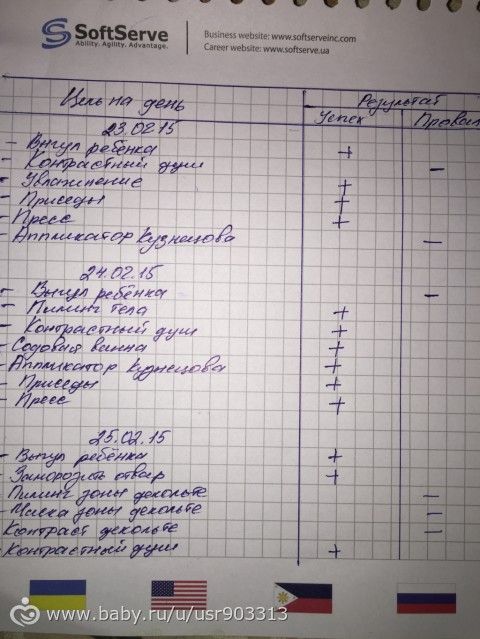 SoftServe
Ability. Agility. Advantage.
Business website: www.softserveinc.com
Career website: www.softserve.ua
Цель на день
Результат
Успех
Провал
23.02.15
- Выгул ребёнка +
- Контрастный душ -
- Увлажнение +
- Приседы +
- Пресс +
- Аппликатор Кузнецова -
24.02.15
- Выгул ребёнка -
- Пилинг тела +
- Контрастный душ +
- Содовая ванна +
- Аппликатор Кузнецова +
- Приседы +
- Пресс +
25.02.15
- Выгул ребёнка +
- Заморозить отвар +
- Пилинг зоны декольте -
- Маска зоны декольте -
Контраст декольте -
- Контрастный душ +
www.baby.ru/u/usr903313